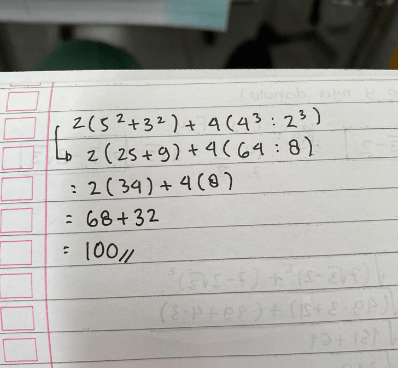 2(5²+3²) + 4(4³ : 2³)
2(25+9) + 4(64 : 8)
= 2(34) + 4(8)
= 68+32
= 100//